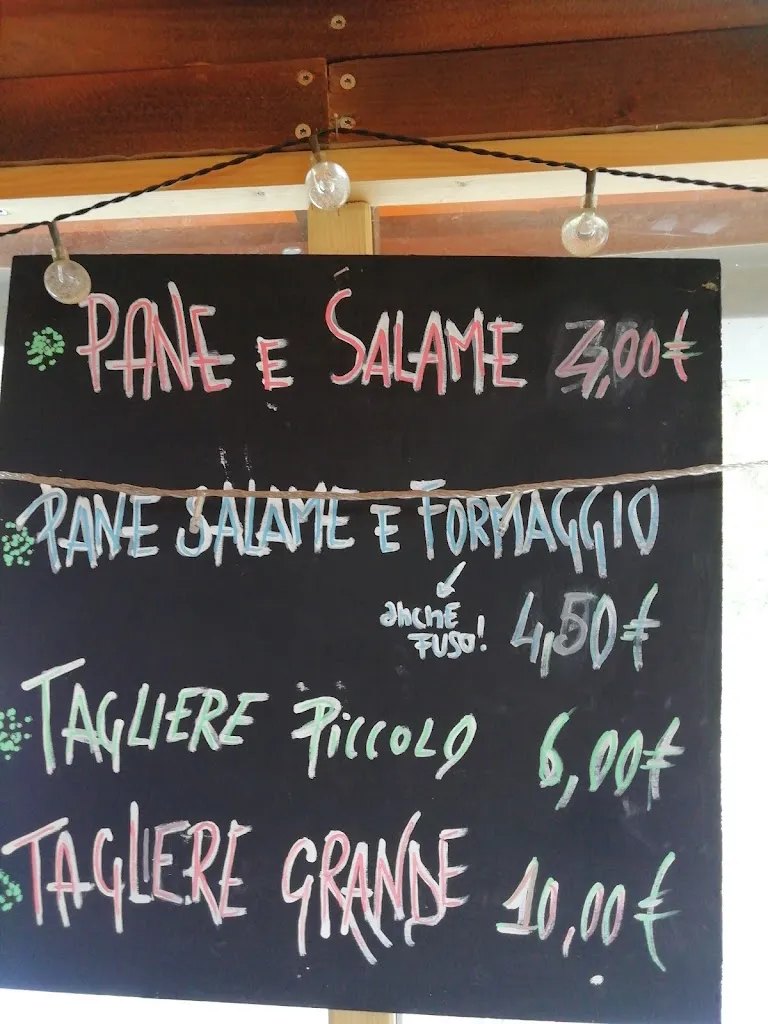 PANE E SALAME 4,00€
PANE SALAME E FORMAGGIO
anche
FUSO! 4,50€
TAGLIERE PICCOLO 6,00€
TAGLIERE GRANDE 10,00€